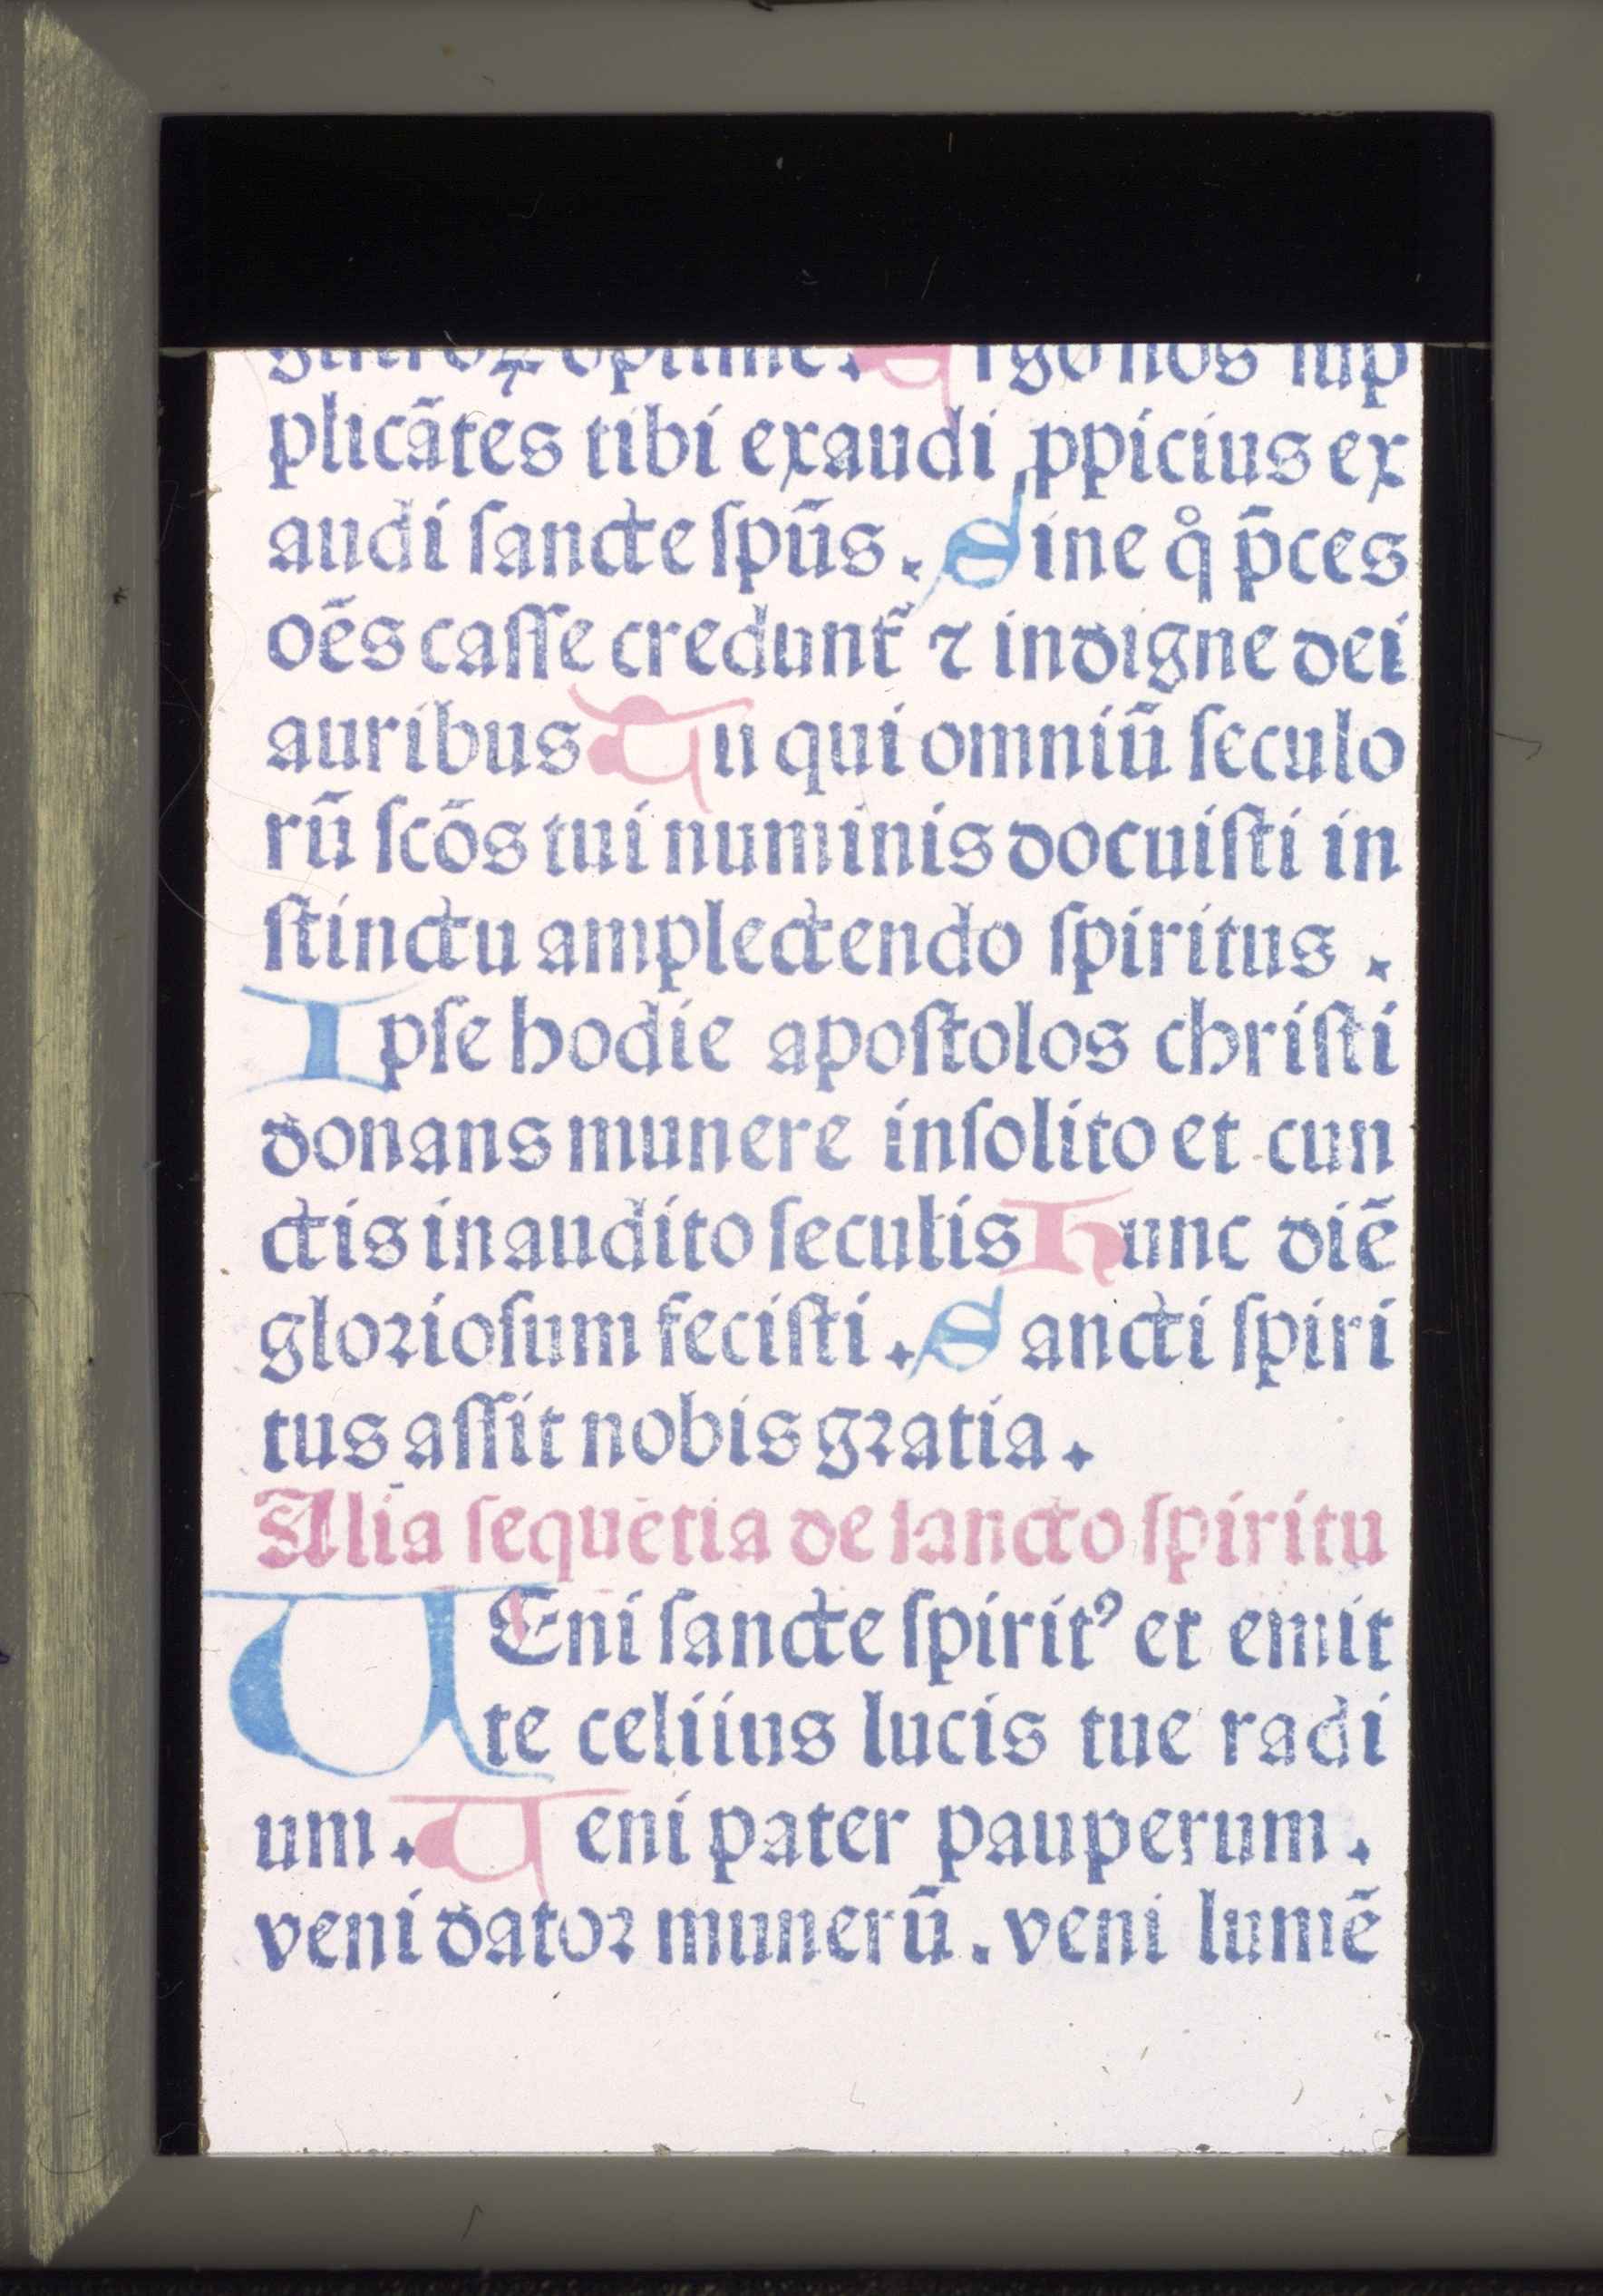 optime. Ergo nos sup
plicãtes tibi exaudi ꝓpicius ex
audi ſancte ſpũs. Sine q̊ p̄ces
oẽs caſſe credunt̃ ⁊ indigne dei
auribus Tu qui omniũ ſeculo
rũ ſcõs tui numinis docuiſti in
ſtinctu amplectendo ſpiritus .
Ipſe hodie apoſtolos chriſti
donans munere inſolito et cun
ctis inaudito ſeculis Hunc diẽ
gloꝛioſum feciſti. Sancti ſpiri
tus aſſit nobis gꝛatia.
Alia ſequẽtia de ſancto ſpiritu
VEni ſancte ſpirit⁹ et emit
te celiius lucis tue radi
um. Veni pater pauperum.
veni datoꝛ munerũ. veni lumẽ